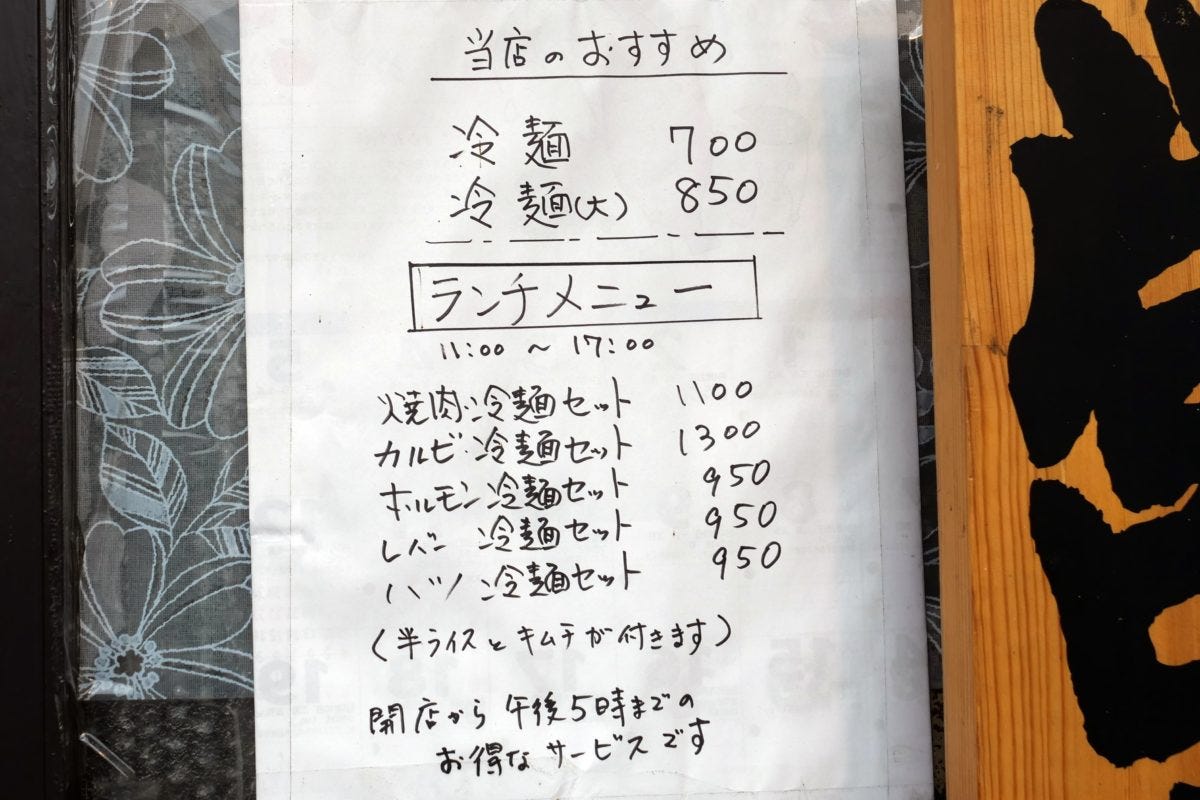 当店のおすすめ
冷麺 700
冷麺(大) 850
ランチメニュー
11:00 ~ 17:00
焼肉・冷麺セット 1100
カルビ・冷麺セット 1300
ホルモン冷麺セット 950
レバー 冷麺セット 950
ハツ 冷麺セット 950
(半ライスとキムチが付きます)
開店から午後5時までの
お得なサービスです